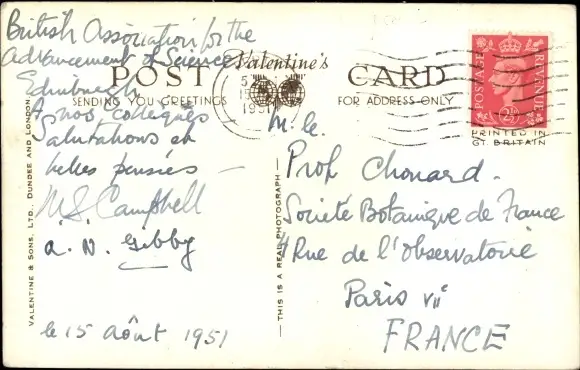 British Association for the
Advancement of Science
Edinburgh
A nos collègues
Salutations et
belles pensées —
M.S. Campbell
A. N. Gibby
le 15 Août 1951
POST CARD
Valentine's
SENDING YOU GREETINGS
FOR ADDRESS ONLY
1951
POSTAGE
REVENUE
2½
PRINTED IN
GT. BRITAIN
M. le.
Prof Chouard.
Societé Botanique de France
4 Rue de l'Observatoire
Paris VIIe
FRANCE
VALENTINE & SONS, LTD., DUNDEE AND LONDON
— THIS IS A REAL PHOTOGRAPH —